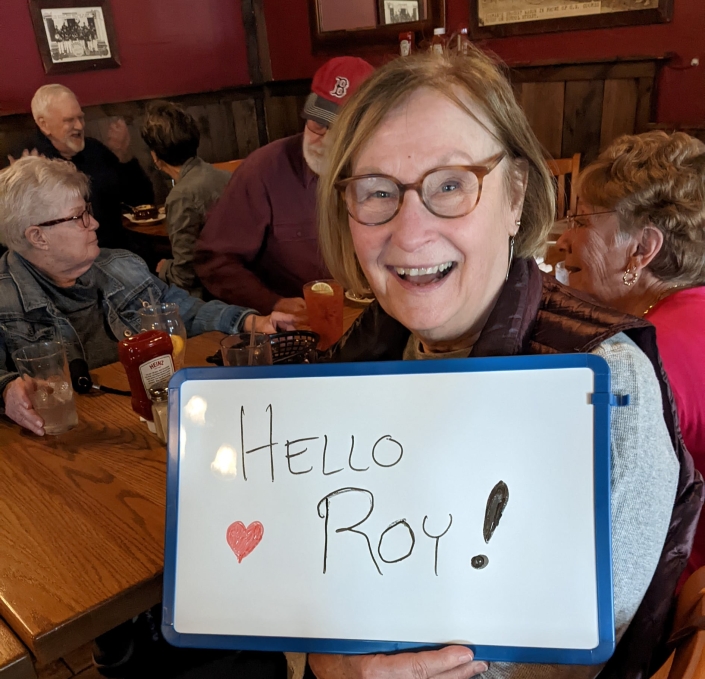 B
HEINZ
HELLO
ROY!